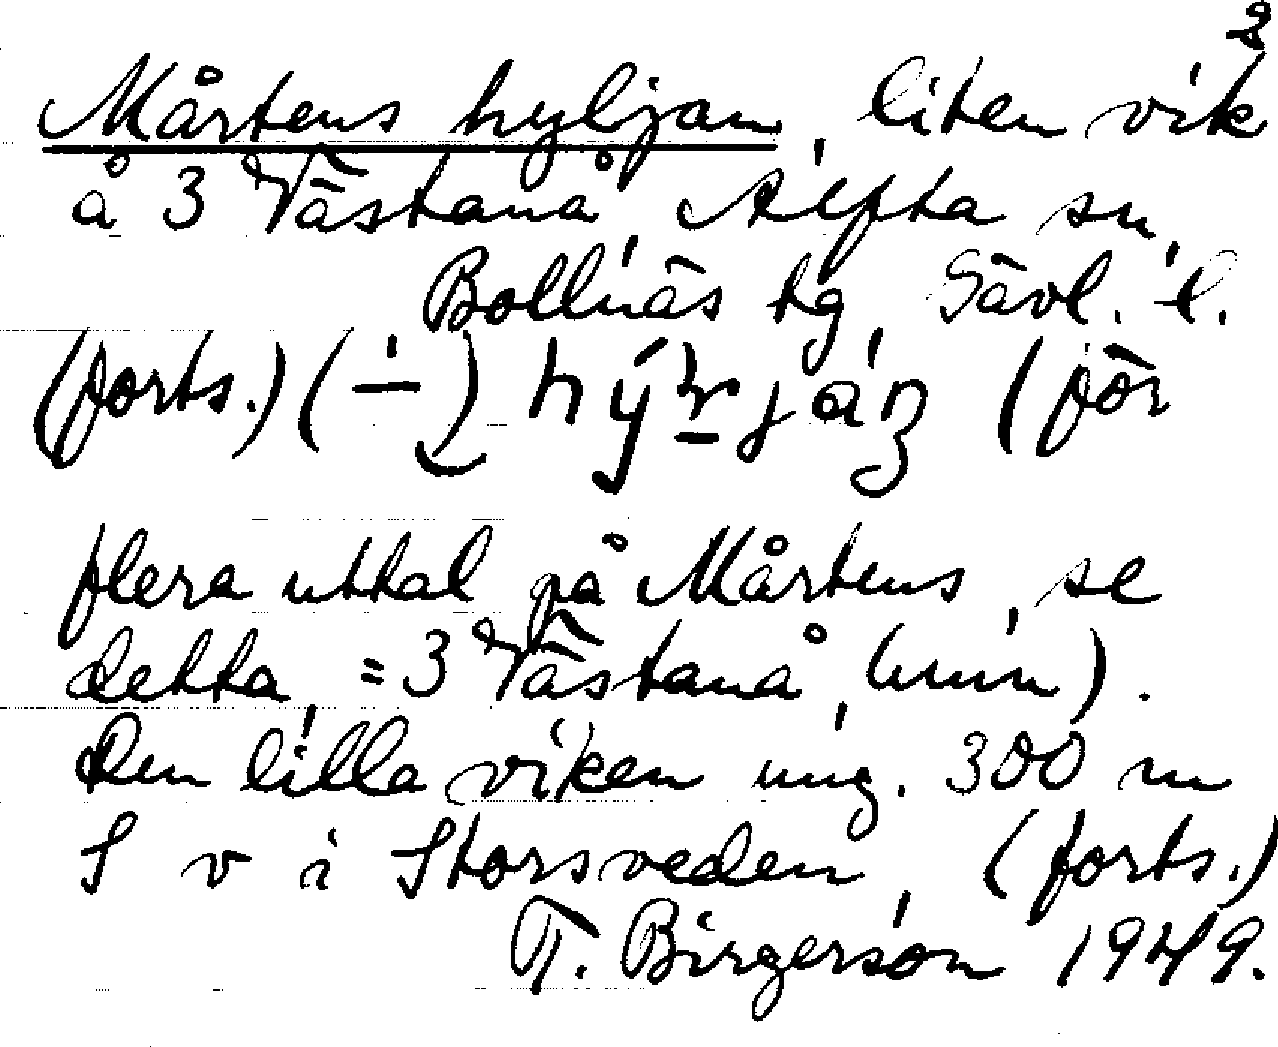 2
Mårtens hyljan, liten vik
å 3 Västanå, Alfta sn,
Bollnäs tg, Gävl. l.
(forts.) (–́) (för
flera uttal på Mårtens, se
detta, = 3 Västanå, min).
Den lilla viken ung. 300 m
S v i Storsveden, (forts.)
T. Birgerson 1949.